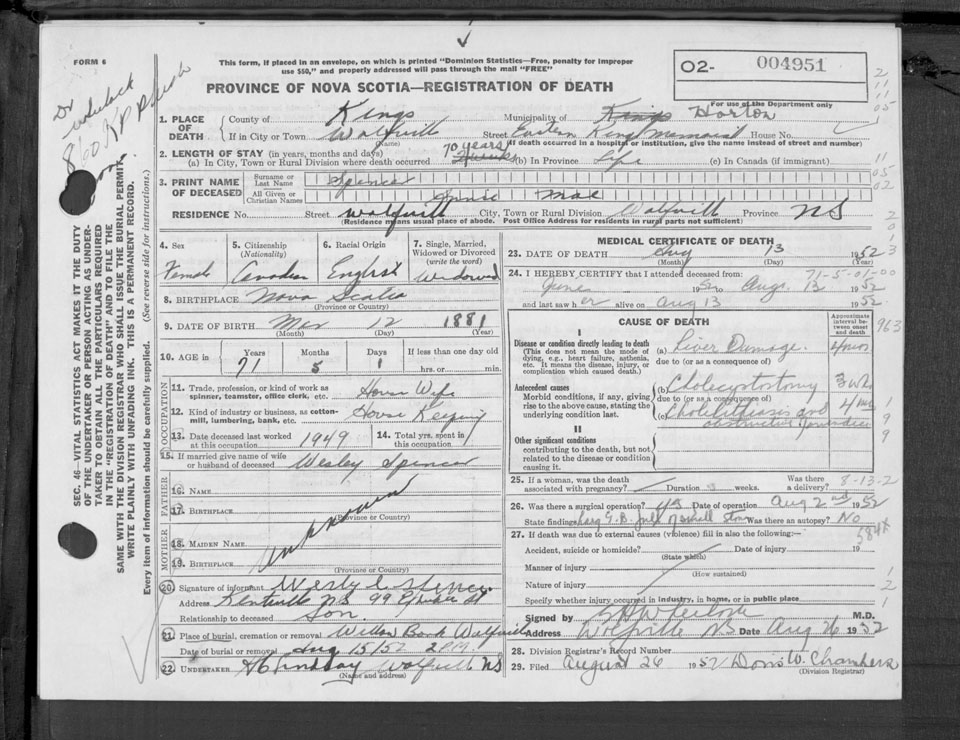 FORM 6
This form, if placed in an envelope, on which is printed "Dominion Statistics—Free, penalty for improper
use $50," and properly addressed will pass through the mail "FREE"
PROVINCE OF NOVA SCOTIA—REGISTRATION OF DEATH
O2- 004951
For use of the Department only
1. PLACE OF DEATH County of Kings Municipality of Kings Horton
If in City or Town Wolfvill Street Eastern Kings Memorial House No.
(Name) (If death occurred in a hospital or institution, give the name instead of street and number)
2. LENGTH OF STAY (in years, months and days)
(a) In City, Town or Rural Division where death occurred 70 years (b) In Province Life (c) In Canada (if immigrant)
3. PRINT NAME OF DECEASED Surname or Last Name Spencer
All Given or Christian Names Annie Mae
RESIDENCE No. Street Wolfvill City, Town or Rural Division Wolfvill Province NS
(Residence means usual place of abode. Post Office Address for residents in rural parts not sufficient)
4. Sex Female
5. Citizenship (Nationality) Canadian
6. Racial Origin English
7. Single, Married, Widowed or Divorced (write the word) Widowed
8. BIRTHPLACE Nova Scotia
(Province or Country)
9. DATE OF BIRTH Mar 12 1881
(Month) (Day) (Year)
10. AGE in Years 71 Months 5 Days 1 If less than one day old hrs. or min.
OCCUPATION
11. Trade, profession, or kind of work as spinner, teamster, office clerk, etc. House Wife
12. Kind of industry or business, as cotton-mill, lumbering, bank, etc. House Keeping
13. Date deceased last worked at this occupation 1949 14. Total yrs. spent in this occupation
15. If married give name of wife or husband of deceased Wesley Spencer
FATHER
16. NAME
17. BIRTHPLACE unknown
(Province or Country)
MOTHER
18. MAIDEN NAME
19. BIRTHPLACE
(Province or Country)
20. Signature of informant
Address Kentville NS 99
Relationship to deceased Son
21. Place of burial, cremation or removal Willow Bank Wolfvill
Date of burial or removal Aug 15/52 2 P.M.
22. UNDERTAKER Lindsay Wolfvill NS
(Name and address)
MEDICAL CERTIFICATE OF DEATH
23. DATE OF DEATH Aug 13 1952
(Month) (Day) (Year)
24. I HEREBY CERTIFY that I attended deceased from: 71-5-01-00
June 1952 to Aug. 13 1952
and last saw her alive on Aug 13 1952
CAUSE OF DEATH
Approximate interval between onset and death
I
Disease or condition directly leading to death
(This does not mean the mode of dying, e.g., heart failure, asthenia, etc. It means the disease, injury, or complication which caused death.)
(a) Liver Damage. 4 mos
due to (or as a consequence of)
Antecedent causes
Morbid conditions, if any, giving rise to the above cause, stating the underlying condition last.
(b) Cholecystostomy 3 wks
due to (or as a consequence of)
(c) Cholelithiasis and obstructive Jaundice 4 mos
II
Other significant conditions
contributing to the death, but not related to the disease or condition causing it.
25. If a woman, was the death associated with pregnancy? Duration weeks. Was there a delivery? 8-13-2
26. Was there a surgical operation? yes Date of operation Aug 2nd 1952
State findings Large G.B. full of small stones Was there an autopsy? No
27. If death was due to external causes (violence) fill in also the following:— 584x
Accident, suicide or homicide? Date of injury 19
(State which)
Manner of injury
(How sustained)
Nature of injury
Specify whether injury occurred in industry, in home, or in public place
Signed by M.D.
Address Wolfville NS Date Aug 26 1952
28. Division Registrar's Record Number
29. Filed August 26 1952 Doris W. Chambers
(Division Registrar)
SEC. 46—VITAL STATISTICS ACT MAKES IT THE DUTY
OF THE UNDERTAKER OR PERSON ACTING AS UNDER-
TAKER TO OBTAIN ALL THE PARTICULARS REQUIRED
IN THE "REGISTRATION OF DEATH" AND TO FILE THE
SAME WITH THE DIVISION REGISTRAR WHO SHALL ISSUE THE BURIAL PERMIT.
WRITE PLAINLY WITH UNFADING INK. THIS IS A PERMANENT RECORD.
Every item of information should be carefully supplied. (See reverse side for instructions.)